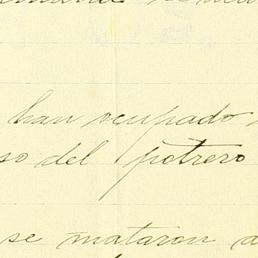 han ocupado
so del potrero
se mataron a